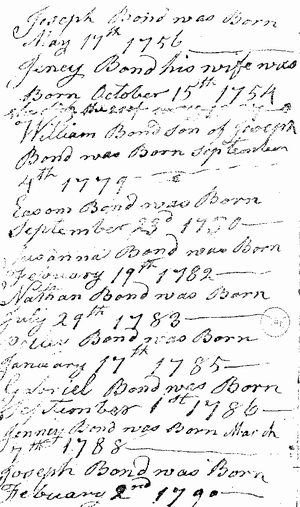 Joseph Bond was Born
May 17th 1756
Jeney Bond his wife was
Born October 15th 1754
William Bond Son of Joseph
Bond was Born September
4th 1779
Easom Bond was Born
September 23d 1780
Susanna Bond was Born
February 19th 1782
Nathan Bond was Born
July 29th 1783
Bond was Born
January 17th 1785
Gabriel Bond was Born
September 1st 1786
Jenney Bond was Born March
7th 1788
Joseph Bond was Born
Febuary 2nd 1790